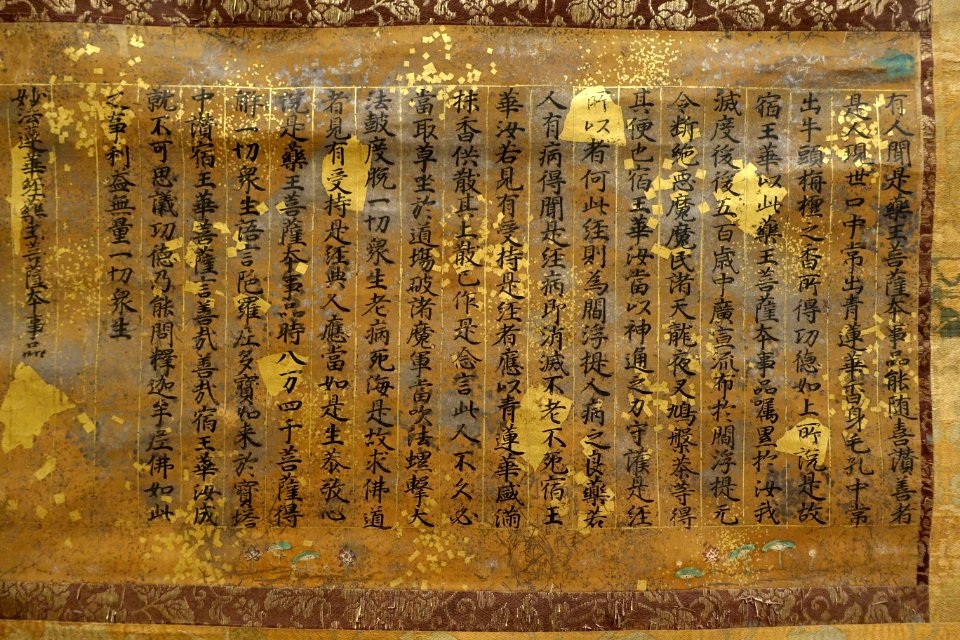 有人聞是藥王菩薩本事品能随喜讃善者
是人現世口中常出青蓮華香身毛孔中常
出牛頭栴檀之香所得功徳如上所説是故
宿王華以此藥王菩薩本事品嘱累於汝我
滅度後後五百歳中廣宣流布於閻浮提无
令断絶悪魔魔民諸天龍夜叉鳩槃荼等得
其便也宿王華汝當以神通之力守護是経
所以者何此経則為閻浮提人病之良藥若
人有病得聞是経病即消滅不老不死宿王
華汝若見有受持是経者應以青蓮華盛滿
抹香供散其上散已作是念言此人不久必
當取草坐於道場破諸魔軍當吹法螺撃大
法鼓度脱一切衆生老病死海是故求佛道
者見有受持是経典人應當如是生恭敬心
説是藥王菩薩本事品時八万四千菩薩得
解一切衆生語言陀羅尼多寳如来於寳塔
中讃宿王華菩薩言善哉善哉宿王華汝成
就不可思議功徳乃能問釋迦牟尼佛如此
之事利益無量一切衆生
妙法蓮華経藥王菩薩本事品